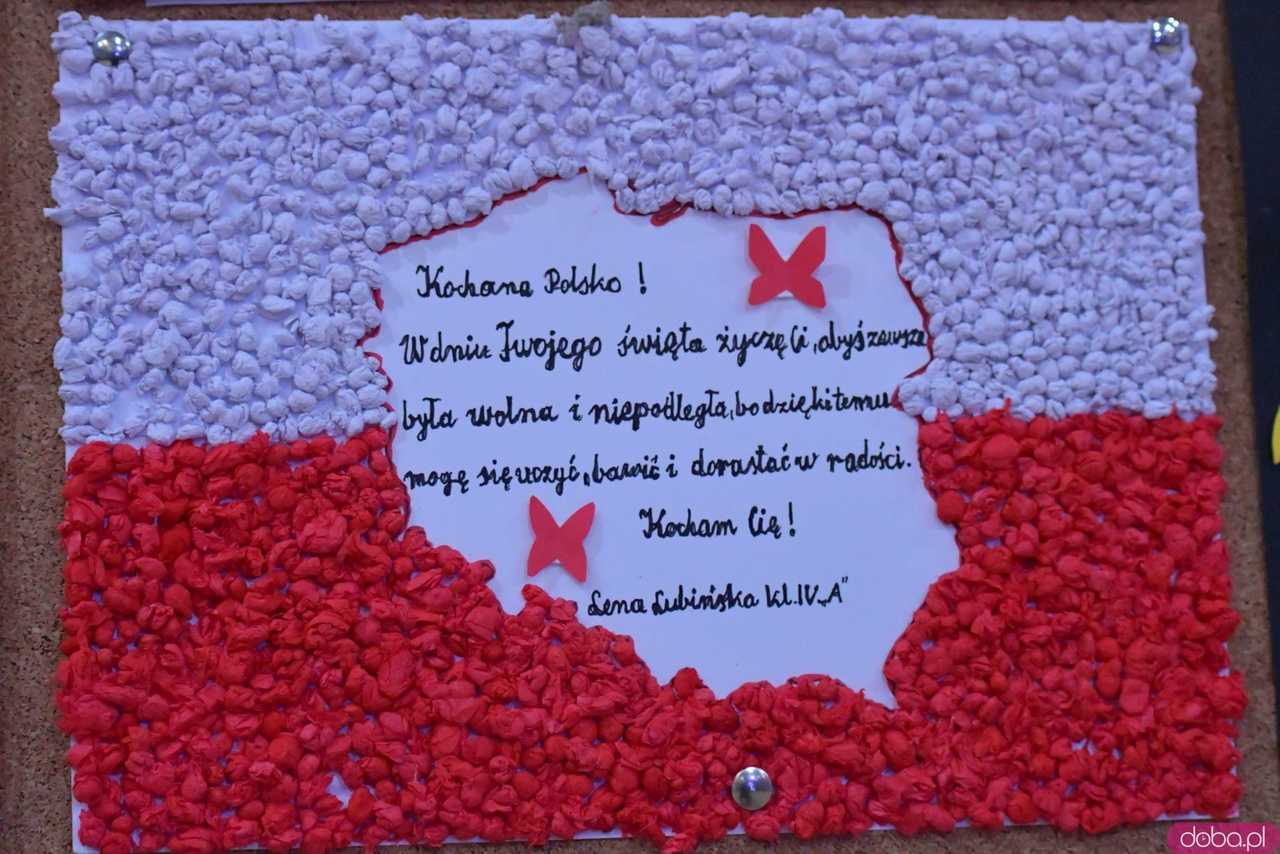 Kochana Polsko!
W dniu Twojego święta życzę Ci, abyś zawsze
była wolna i niepodległa, bo dzięki temu
mogę się uczyć, bawić i dorastać w radości.
Kocham Cię!
Lena Lubińska kl. IV „A”
doba.pl